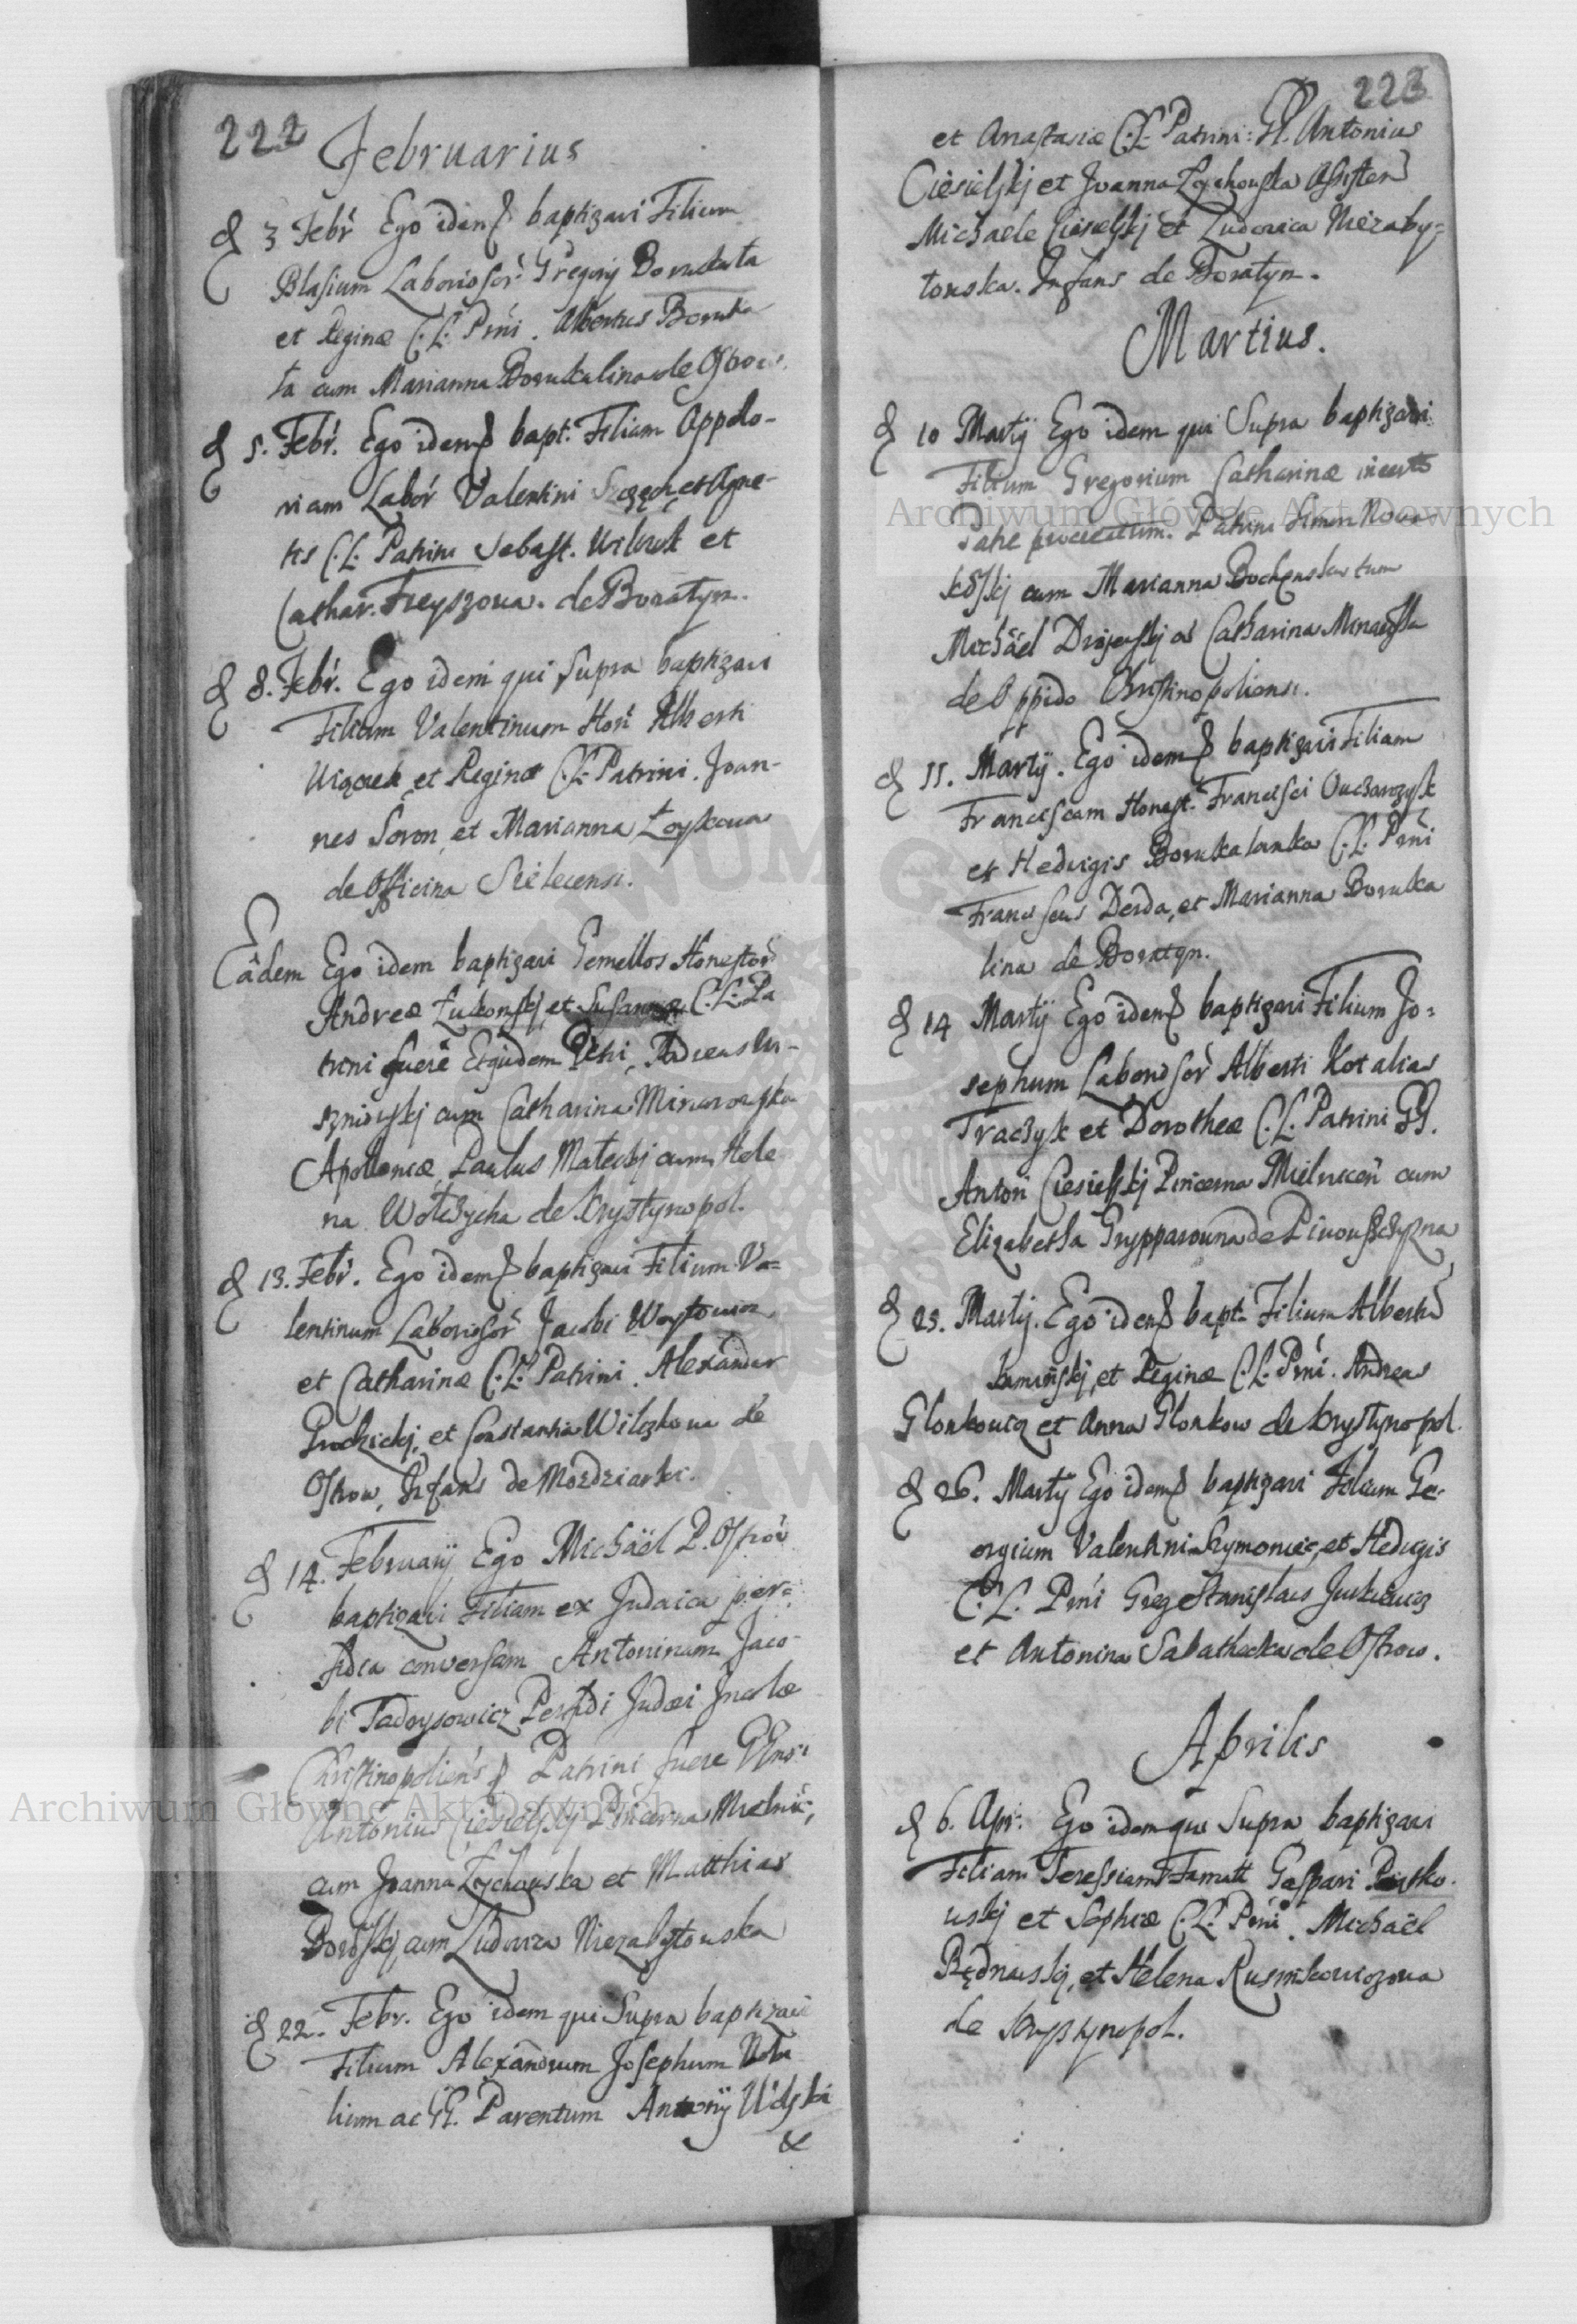 222
Februarius
d 3 Febr Ego idem baptizavi Filium
Blasium Laboriosor: Gregorij Borukata
et Reginæ C.L. Prni. Albertus Boruka
ta cum Marianna Borukalina de Ostrow.
d 5. Febr. Ego idem bapt. Filiam Appolo-
niam Labor Valentini et Agne-
tis C.L. Patrini Sebast. et
Cathar. Freyszowa. de Boratyn.
d 8. Febr. Ego idem qui Supra baptizavi
Filium Valentinum Hon Alberti
Wiącek et Reginæ C.L. Patrini. Joan-
nes Soron et Marianna Łoykowa
de Officina Sielecensi.
Eâdem Ego idem baptizavi Gemellos Honestor
Andreæ Żukowskj et Susannæ C.L. Pa
trini fuere Ejusdem Petri, Andreas Wi-
szniovskj cum Catharina
Apoloniæ, Paulus Małeckj cum Hele
na Wołczycha de Krystynopol.
d 13. Febr. Ego idem baptizavi Filium Va=
lentinum Laboriosor Jacobi Woytowicz
et Catharinæ C.L. Patrini. Alexander
Grodzickj, et Constantia Wilczkowa de
Ostrow, Infans de Mozdziarki.
d 14. Februarij Ego Michäel P. Ostrov
baptizavi Filiam ex Judaica per=
fidia conversam Antoninam Jaco-
bi Tadeysowicz Perfidi Judæi Incolæ
Christinopoliens Patrini fuere GGnsi
Antonius Ciesielskj Pincerna Mielnic;
cum Joanna Zychowska et Matthias
cum Ludovica Niezabytowska
d 22. Febr. Ego idem qui Supra baptizavi
Filium Alexandrum Josephum Nobi
lium ac GG. Parentum Antonij
&
223
et Anastasiæ C.L. Patrini: G. Antonius
Ciesielskj et Joanna Zychowska Assisten
Michaele Ciesielskj et Ludovica Niezaby=
towska. Infans de Boratyn.
Martius.
d 10 Martij Ego idem qui Supra baptizavi
Filium Gregorium Catharinæ incerto
Patre procreatum. Patrini Simon
cum Marianna Bochenska tum
Michäel ac Catharina
de Oppido Christinopoliensi.
d 11. Martij. Ego idem baptizavi Filiam
Franciscam Honest. Francisci Owczarzyk
et Hedvigis Borukalanka C.L. Prni
Franciscus Derda, et Marianna Boruka
lina de Boratyn.
d 14 Martij Ego idem baptizavi Filium Jo=
sephum Laboriosor Alberti Kot alias
Traczyk et Dorotheæ C.L. Patrini GG.
Anton Ciesielskj Pincerna Mielnicen cum
Elizabetha Grypparowna de Piwowszczyzna
d 25. Martij. Ego idem bapt. Filium Alberti
Kaminskj, et Reginæ C.L. Prni. Andreas
Glonkowicz et Anna Glonkow de Krystynopol.
d 26. Martij Ego idem baptizavi Filium Ge-
orgium Valentini Szymoniec, et Hedvigis
C.L. Prni Greg Stanislaus Jurkiewicz
et Antonina Sabathecka de Ostrow.
Aprilis
d 6. Apr: Ego idem qui Supra baptizavi
Filiam Teressiam Famatt Gaspari Piotko-
wskj et Sophiæ C.L. Prni. Michäel
Bednarskj, et Helena Rusinkowiczowa
de Krystynopol.
Archiwum Główne Akt Dawnych
Archiwum Główne Akt Dawnych